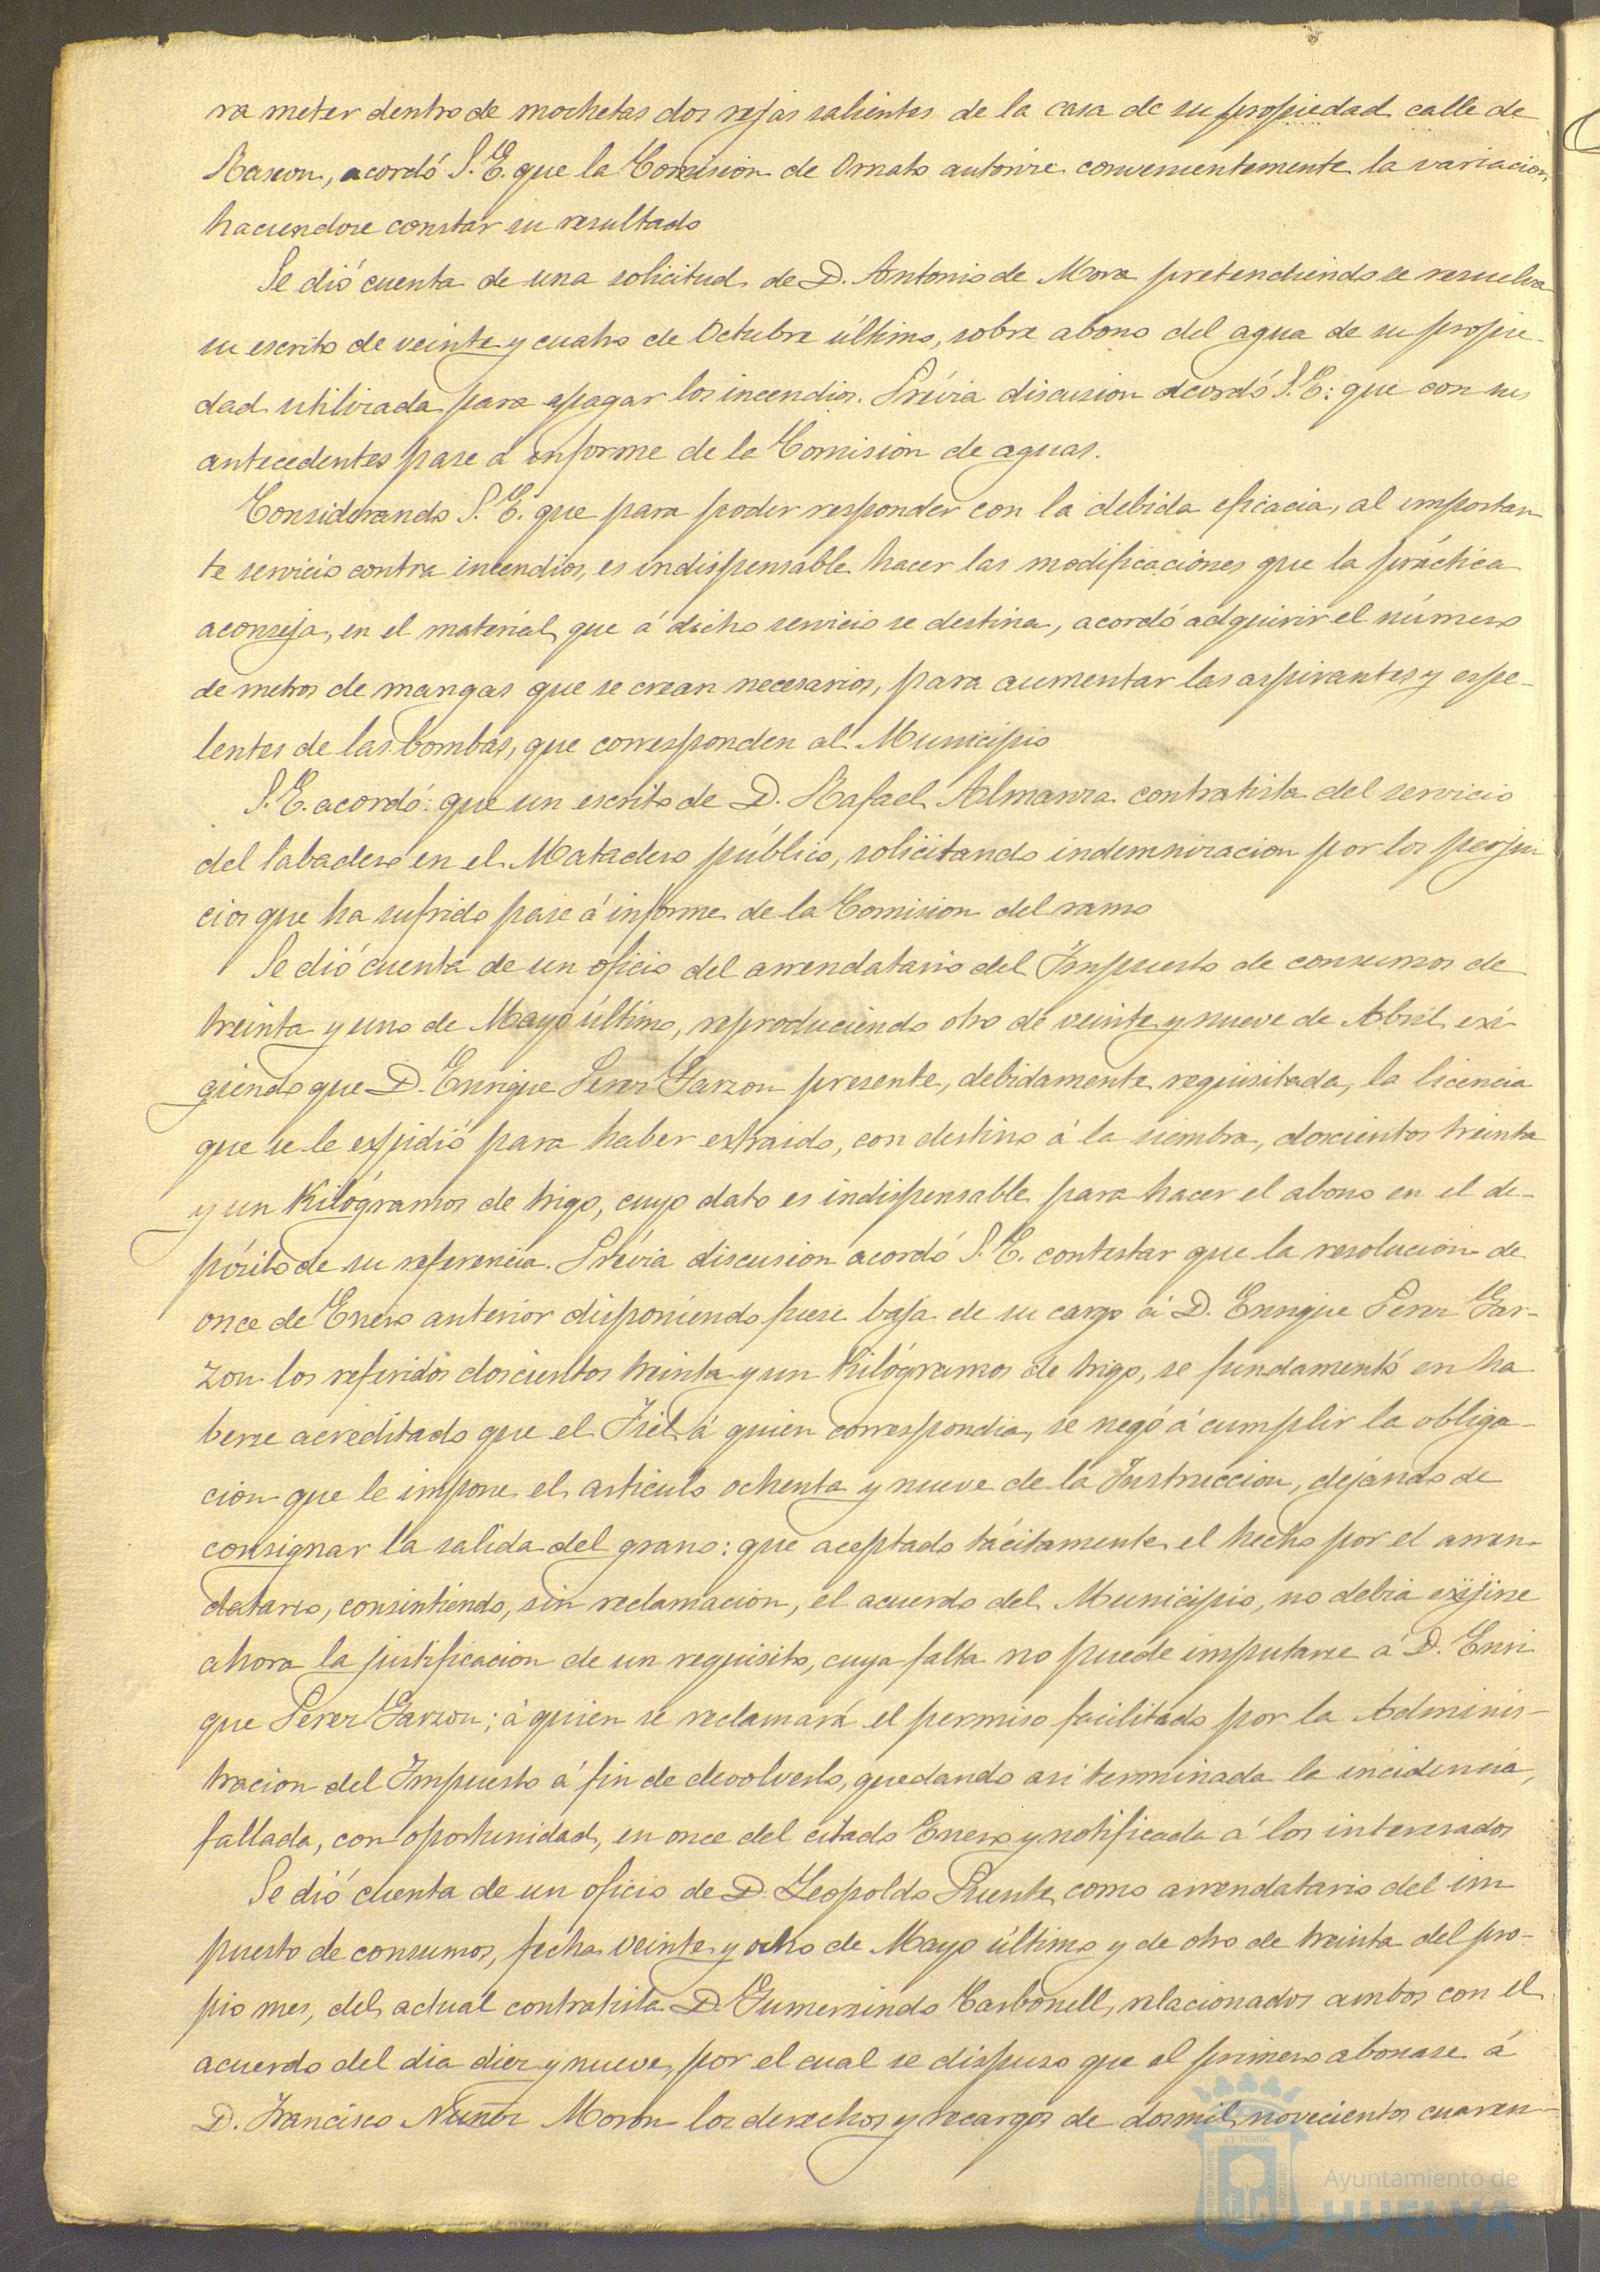 ra meter dentro de mochetas dos rejas salientes de la casa de su propiedad calle de
Rascon, acordó S.E. que la Comision de Ornato autorize convenientemente la variacion,
haciendose constar su resultado
Se dió cuenta de una solicitud de D. Antonio de Mora pretendiendo se resuelva
su escrito de veinte y cuatro de Octubre último, sobre abono del agua de su propie-
dad utilizada para apagar los incendios. Prévia discusion acordó S.E: que con sus
antecedentes pase á informe de la Comision de aguas.
Considerando S.E. que para poder responder con la debida eficacia, al importan-
te servicio contra incendios, es indispensable hacer las modificaciones que la práctica
aconseja, en el material, que á dicho servicio se destina, acordó adquirir el número
de metros de mangas que se crean necesarios, para aumentar las aspirantes y espe-
lentes de las bombas, que corresponden al Municipio
S.E. acordó: que un escrito de D. Rafael Almanza contratista del servicio
del labadero en el Matadero público, solicitando indemnizacion por los perjui
cios que ha sufrido pase á informe de la Comision del ramo
Se dió cuenta de un oficio del arrendatario del Impuesto de consumos de
treinta y uno de Mayo último, reproduciendo otro de veinte y nueve de Abril exi-
giendo que D. Enrique Perez Garzon presente, debidamente requisitada, la licencia
que se le espidió para haber extraido, con destino á la siembra, doscientos treinta
y un Kilógramos de trigo, cuyo dato es indispensable para hacer el abono en el de-
pósito de su referencia. Prévia discusion acordó S.E. contestar que la resolucion de
once de Enero anterior disponiendo fuese baja de su cargo á D. Enrique Perez Gar-
zon los referidos doscientos treinta y un Kilógramos de trigo, se fundamentó en ha
berse acreditado que el Fiel á quien correspondia, se negó á cumplir la obliga-
cion que le impone el articulo ochenta y nueve de la Instruccion, dejando de
consignar la salida del grano: que aceptado tácitamente el hecho por el arren-
datario, consintiendo, sin reclamacion, el acuerdo del Municipio, no debia exijirse
ahora la justificacion de un requisito, cuya falta no puede imputarse á D. Enri
que Perez Garzon; á quien se reclamará el permiso facilitado por la Adminis-
tracion del Impuesto á fin de devolverlo, quedando asi terminada la incidencia,
fallada, con oportunidad, en once del citado Enero y notificada á los interesados
Se dió cuenta de un oficio de D. Leopoldo Puente, como arrendatario del im
puesto de consumos, fecha veinte y ocho de Mayo último y de otro de treinta del pro-
pio mes, del actual contratista D. Gumersindo Carbonell, relacionados ambos con el
acuerdo del dia diez y nueve, por el cual se dispuso que el primero abonase á
D. Francisco Nuñez Moron los derechos y recargos de dos mil novecientos cuaren-
Ayuntamiento de
HUELVA